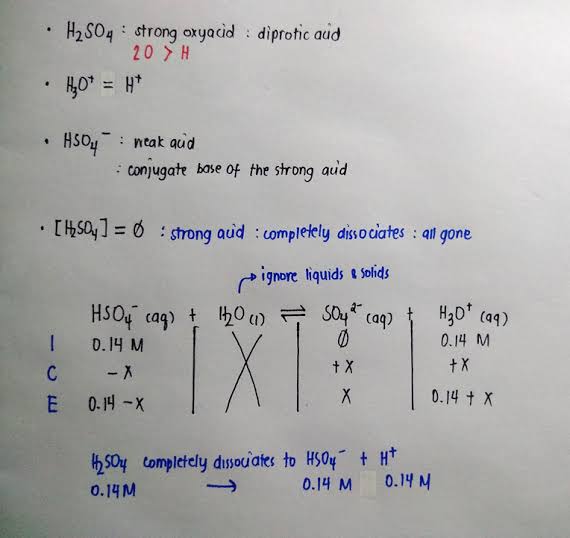 • H₂SO₄ : strong oxyacid : diprotic acid
2O > H
• H₃O⁺ = H⁺
• HSO₄⁻ : weak acid
: conjugate base of the strong acid
• [H₂SO₄] = Ø : strong acid : completely dissociates : all gone
→ ignore liquids & solids
HSO₄⁻ (aq) + H₂O (l) ⇌ SO₄²⁻ (aq) + H₃O⁺ (aq)
I 0.14 M Ø 0.14 M
C - x + x + x
E 0.14 - x x 0.14 + x
H₂SO₄ completely dissociates to HSO₄⁻ + H⁺
0.14 M → 0.14 M 0.14 M